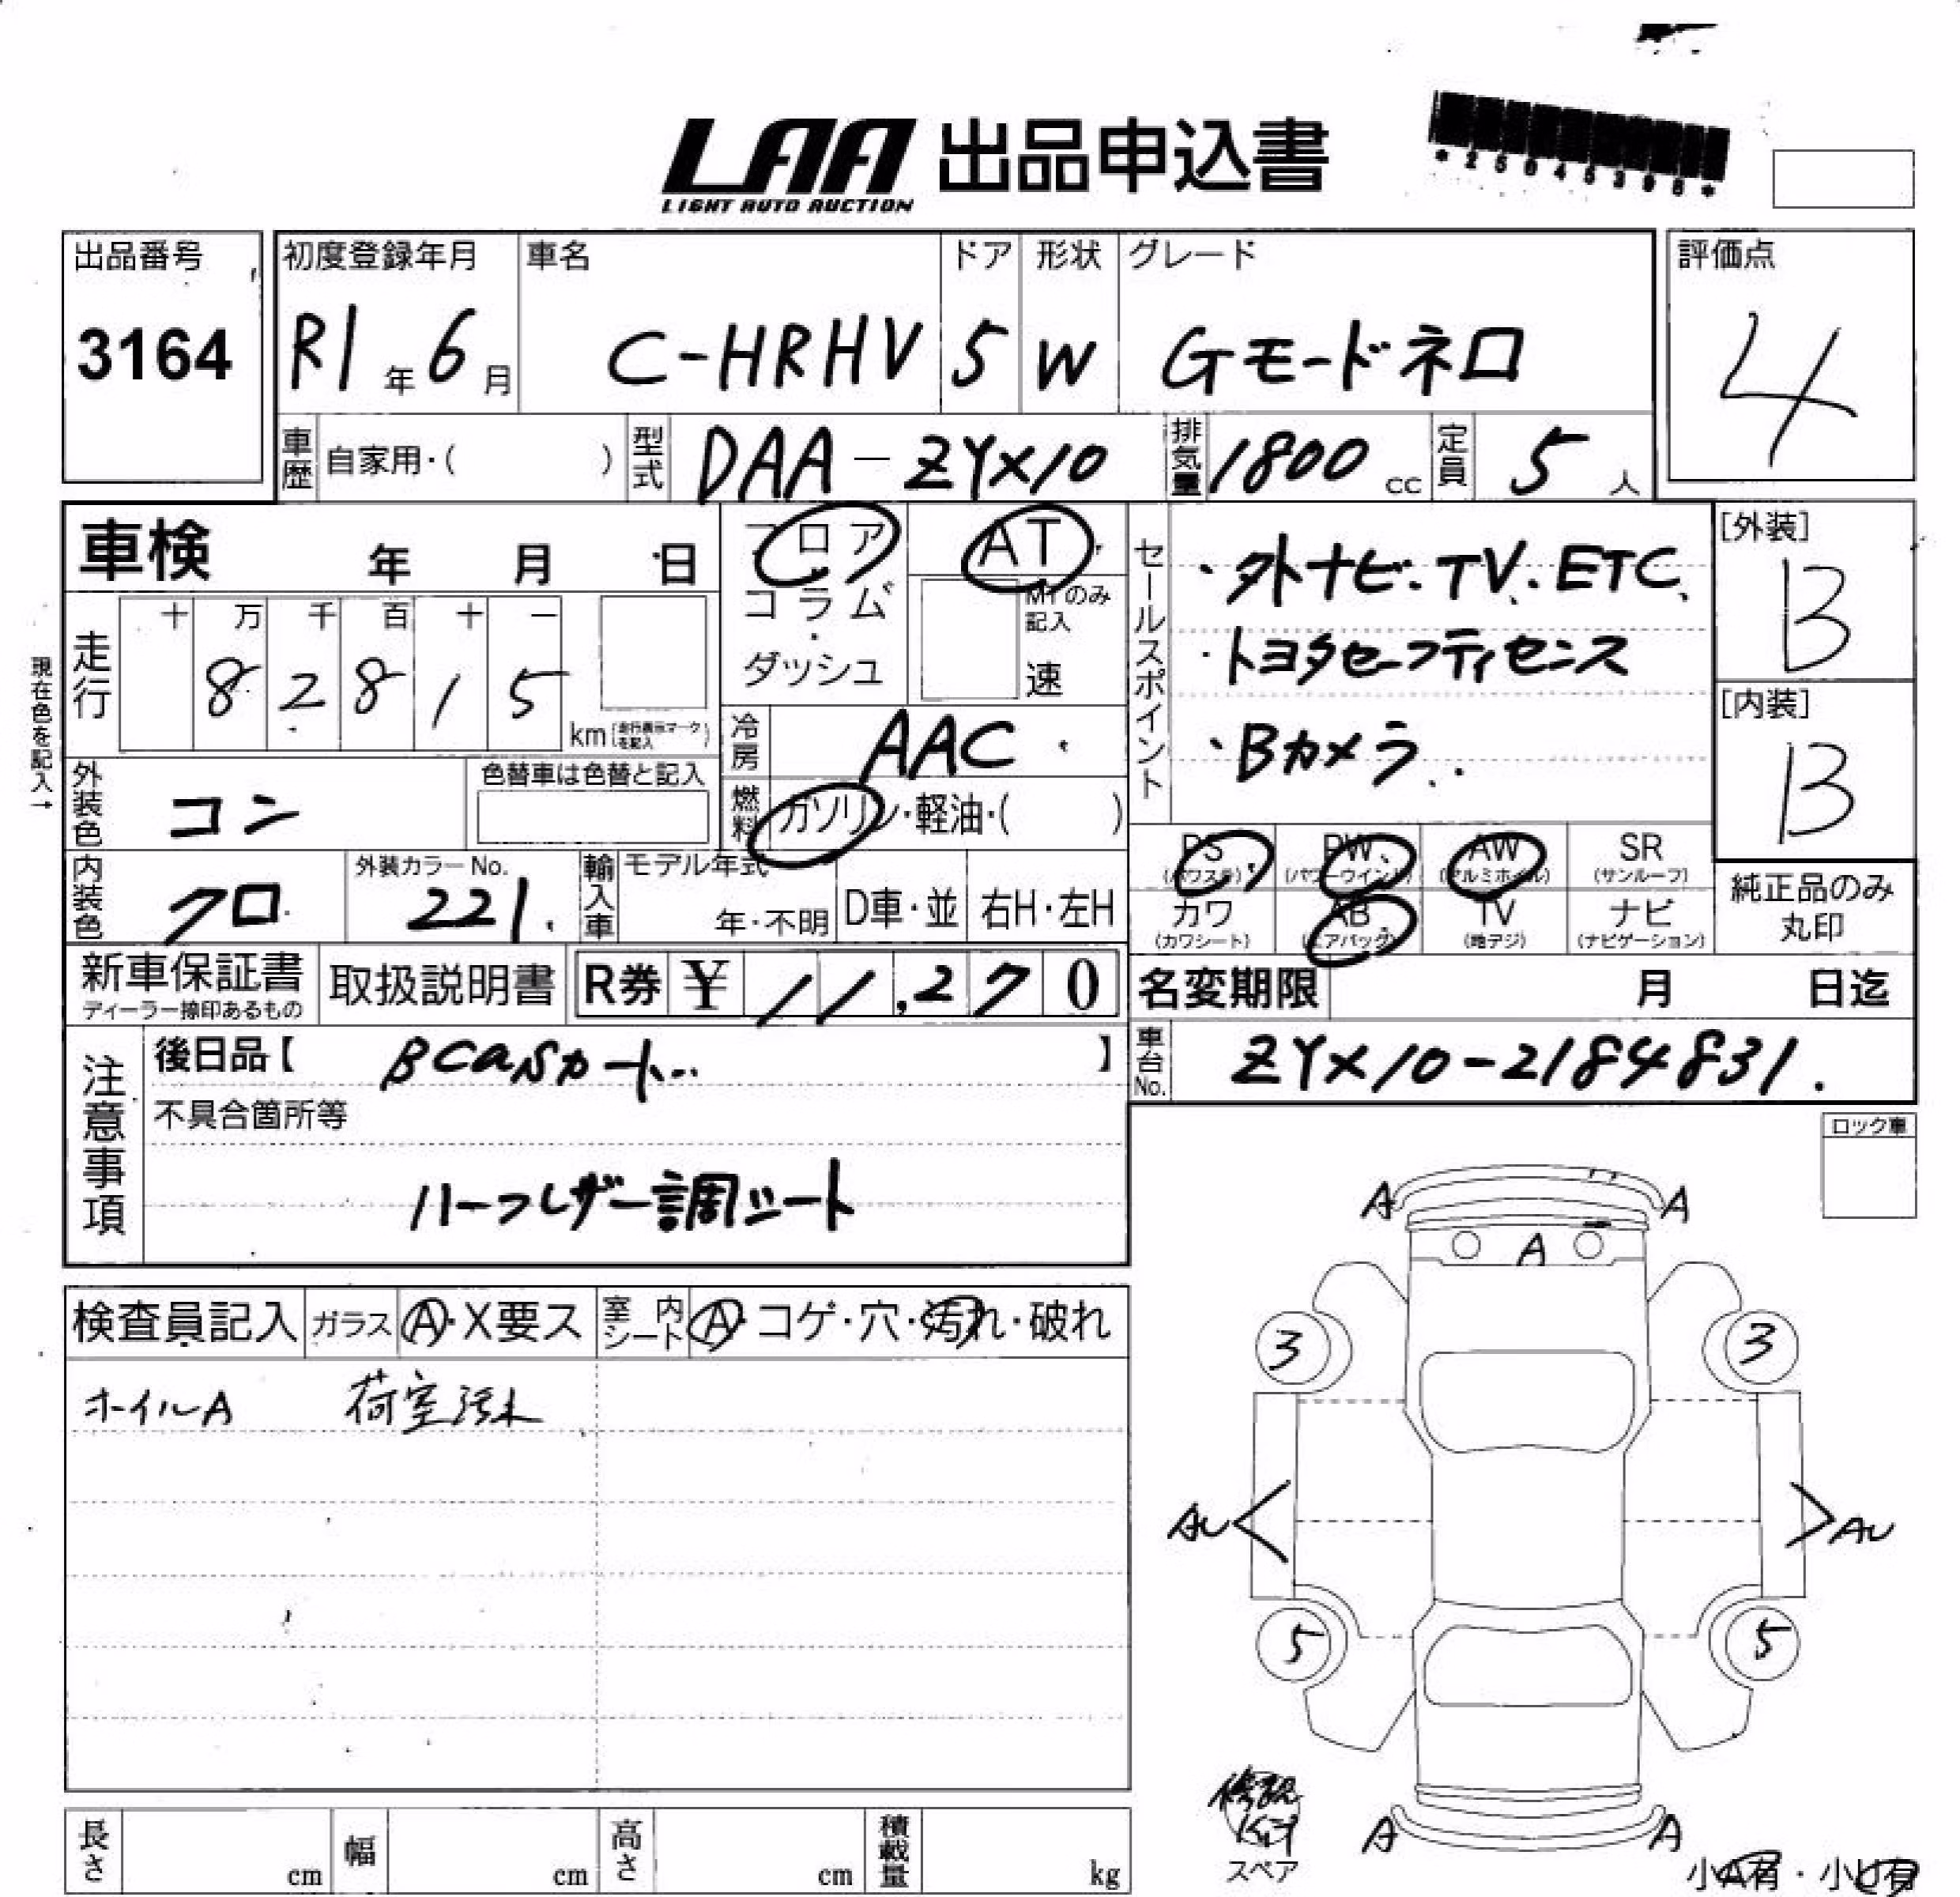 LAA 出品申込書
LIGHT AUTO AUCTION
*25045398*
出品番号 初度登録年月 車名 ドア 形状 グレード 評価点
3164 R1年6月 C-HRHV 5 W Gモードネロ 4
車歴 自家用・( ) 型式 DAA-ZYX10 排気量 1800cc 定員 5人
車検 年 月 日 フロア AT セールスポイント ・外ナビ.TV.ETC、 [外装]
コラム MTのみ記入 B
・
ダッシュ 速 ・トヨタセーフティセンス
現在色を記入→
走行 十 万 千 百 十 一
8 2 8 1 5 km (走行表示マークを記入) [内装]
冷房 AAC ・Bカメラ.. B
外装色 コン 色替車は色替と記入 燃料 ガソリン・軽油・( )
PS (パワステ) PW (パワーウインド) AW (アルミホイル) SR (サンルーフ)
カワ (カワシート) AB (エアバッグ) TV (地デジ) ナビ (ナビゲーション) 純正品のみ丸印
内装色 クロ 外装カラーNo. 221. 輸入車 モデル年式 年・不明 D車・並 右H・左H
新車保証書 取扱説明書 R券 ¥ 11,270 名変期限 月 日迄
ディーラー捺印あるもの
注意事項 後日品【 BCasカード 】 車台No. ZYX10-2184831.
不具合箇所等 ロック車
ハーフレザー調シート
A A
A
検査員記入 ガラス A・X要ス 室内シート A・コゲ・穴・汚れ・破れ
3 3
ホイルA 荷室汚れ
AU AU
5 5
A A
スペア
小A有・小U有
長さ cm 幅 cm 高さ cm 積載量 kg